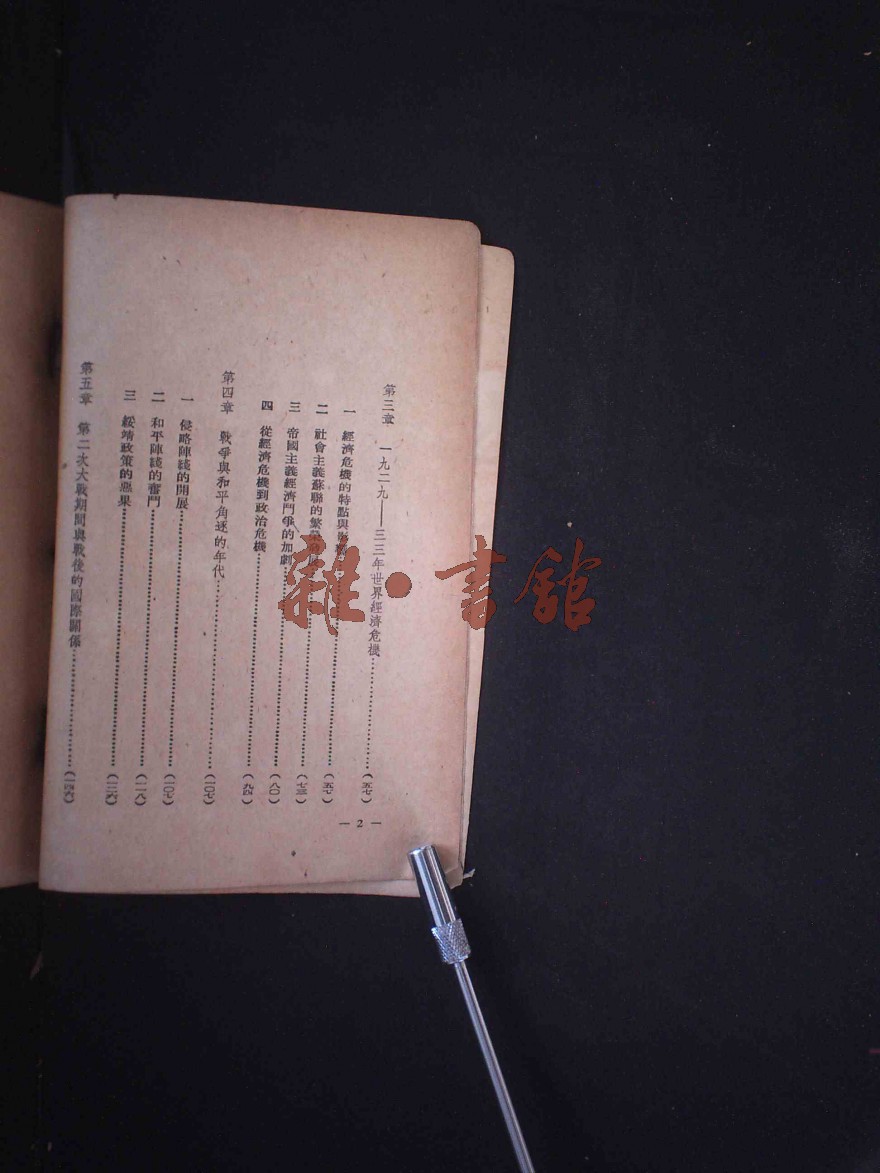 第三章 一九二九——三三年世界經濟危機…………(五七)
一 經濟危機的特點與…………(五七)
二 社會主義蘇聯的繁榮…………(七三)
三 帝國主義經濟鬥爭的加劇…………(八〇)
四 從經濟危機到政治危機…………(九四)
第四章 戰爭與和平角逐的年代…………(一〇七)
一 侵略陣綫的開展…………(一〇七)
二 和平陣綫的奮鬥…………(一一八)
三 綏靖政策的惡果…………(一三六)
第五章 第二次大戰期間與戰後的國際關係…………(一四六)
— 2 —
雜·書舘